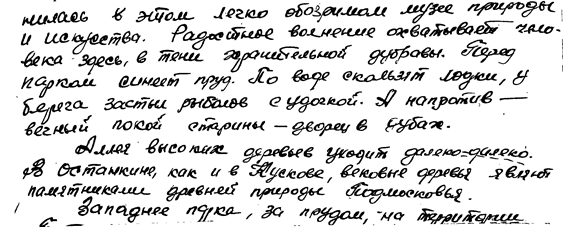 нилась в этом легко обозримом музее природы
и искусства. Радостное волнение охватывает чело-
века здесь, в тени хранительной дубравы. Перед
парком синеет пруд. По воде скользят лодки, у
берега застыл рыболов с удочкой. А напротив —
вечный покой старины — дворец в дубах.
Аллея высоких деревьев уходит далеко-далеко.
В Останкине, как и в Кускове, вековые деревья являют
памятниками древней природы Подмосковья.
Западнее парка, за прудом, на территории